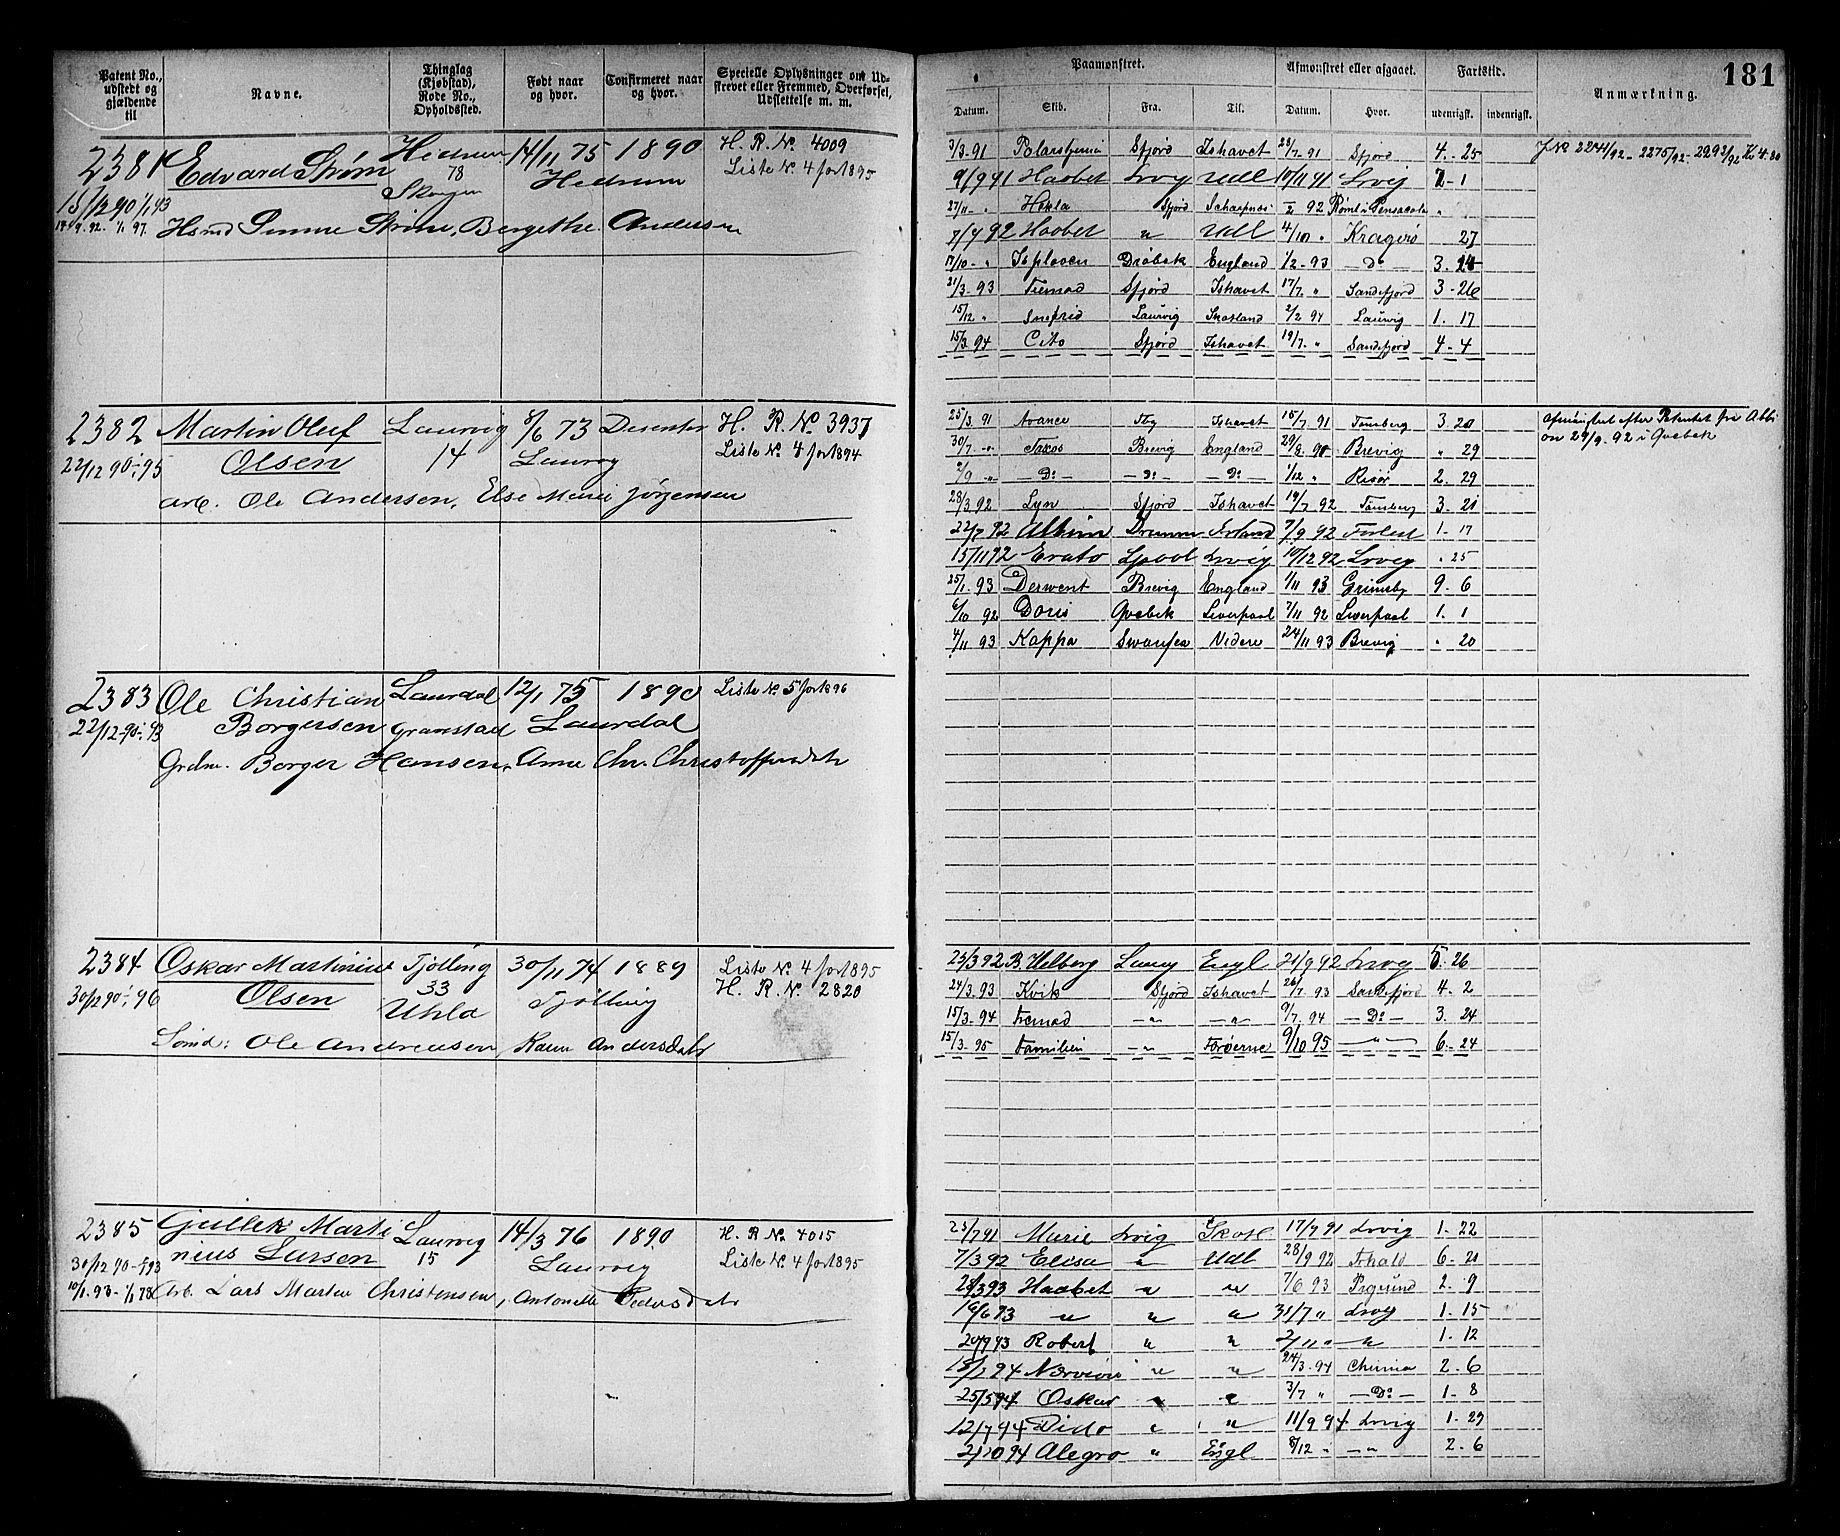 181
Patent No., udstedt og gjældende til
Navne.
Thinglag (Kjøbstad), Rode No., Opholdssted.
Født naar og hvor.
Confirmeret naar og hvor.
Specielle Oplysninger om Udstrevet eller Fremmed, Overførsel, Udslettelse m. m.
Paamønstret.
Afmønstret eller afgaaet.
Fartstid.
Anmærkning.
Datum. Skib. Fra. Til. Datum. Hvor. udenrigsk. indenrigsk.
2381 Edvard Strøm Hedrum 14/11 75 1890 H. R. No. 4009
78 Hedrum Liste No. 4 for 1895
Skogen
15/12 90 1/1 93
1/1 97. Strøm, Bergethe Andersen
3/3. 91 Polarstjernen Sfjord Ishavet 23/7. 91 Sfjord 4. 25
9/9 91 Haabet Lrvig Udl 10/11 91 Lrvig 2 - 1
27/11 - " Hekla Sfjord 92 Rømt i Pensacola "
7/7 92 Haabet " Udl 4/10 " Kragerø 27
17/10 - " Isploven Drøbak England 1/2 - 93 - Do - 3. 14
21/3. 93 Fremad Sfjord Ishavet 17/7. " Sandefjord 3 - 26
15/12 " Snefrid Laurvig Skotland 2/2 94 Laurvig 1. 17
15/3. 94 Cito Sfjord Ishavet 19/7. " Sandefjord 4 - 4
2382 Martin Oluf Laurvig 8/6 73 Desentr H. R. No 3937
22/12 90 - 95 Olsen 14 Laurvig Liste No. 4 for 1894
Arb. Ole Andersen, Else Marie Jørgensen
25/3. 91 Avance Tbg Ishavet 15/7. 91 Tønsberg 3. 20
30/7 - " Brevig England 29/8. 91 Brevig " 29
2/9 - " - Do - - Do - - Do - 1/12 " Risør 2. 29
28/3. 92 Lyn Sfjord Ishavet 19/7. 92 Tønsberg 3. 21
22/7 92 Albion Drammen Irland 7/9 92 Forlist 1. 17
15/11 92 Erato Lpool Lrvig 10/12 92 Lrvig " 25
25/1. 93 Derwent Brevig England 1/11 93 Grimsby 9. 6
6/10 92 Doris Qvebek Liverpool 7/11 92 Liverpool 1. 1
4/11 93 Kappa Swansea Videre 24/11 93 Brevig " 20
Afmønstret efter Patentet fra Albi
on 29/9. 92 i Qvebek
2383 Ole Christian Laurdal 12/1 75 1890 Liste No. 5 for 1896
22/12 - 90 - 93 Borgersen Granstad Laurdal
Grdm. Borger Hansen, Anne Chr. Christoffersdatr
2384 Oskar Martinius Tjølling 30/11 74 1889 Liste No. 4 for 1895
30/12 90 - 96 Olsen 33 Tjølling H. R. No. 2820
Uhla
Sømd: Ole Andreassen, Karen Andersdatr
25/3 92 B. Helberg Laurv Engl 21/9 92 Lrvg 5. 26
24/3. 93 Kvik Sfjord Ishavet 26/7. 93 Sandefjord 4. 2
15/3. 94 Fremad - " - - " 9/7. 94 - Do - 3. 24
15/3. 95 Familien - " Færøerne 9/10 95 - " - 6. 24
2385 Gullek Marti Laurvig 14/3 76 1890 H. R No 4015
30/12 90 - 93 nius Larsen 15 Laurvig Liste No. 4 for 1895
Arb. Lars Martin Christensen, Antonette Pedersdatr
25/7 91 Marie Lrvig Skotl 17/9 91 Lrvig 1. 22
7/3 92 Elisa " Udl 28/9 92 Frhald 6. 21
28/3 93 Haabet " " 7/6 93 Prgrund 2. 9
16/6 93 " " " 31/7 " Lrvg 1. 15
20/9 93 Robert " " 2/11 " " 1. 12
94 " " 24/3. 94 Chrnia 2. 6
25/5 94 Oskar " " 3/7 " - Do - 1. 8
12/7 94 Dido " " 11/9 94 Lrvig 1. 29
2/10 94 Alegro " Engl 8/12 " - " 2. 6